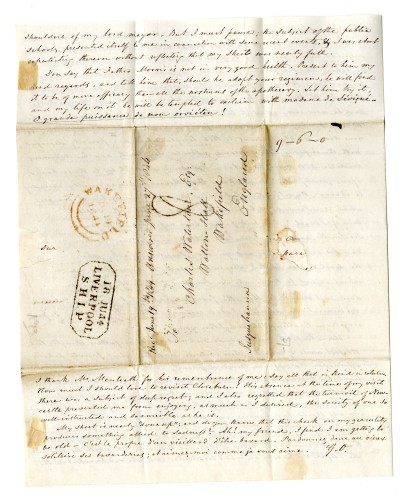 shoulders of my lord mayor. But I must pause; the subject of the public
schools presented itself to me in connection with some recent events, & I was about
expatiating thereon without reflecting that my sheet was nearly full.
You say that Father Morris is not in very good health. Present to him my
kind regards, and tell him that, should he adopt your regimen, he will find
it to be of more efficacy than all the nostrums of the apothecary. Let him try it,
and my life on it he will be tempted to exclaim with madame de Sévigné—
O grande puissance de mon orviétan!
9-6-0
WAKEFIELD
8
To
Charles Waterton, Esq.
Walton Hall
Wakefield
England
Susquehanna
18 JU 44
LIVERPOOL
SHIP
I thank Mr. Monteath for his remembrance of me. Say all that is kind in return.
How much I should love to revisit Closeburn! His absence at the time of my visit
there was a subject of deep regret; and I also regretted that the turmoil of New-
castle prevented me from enjoying, as much as I desired, the society of one so
well-instructed and so amiable as he is.
My sheet is nearly done up; and do you know that this check on my garrulity
produces something allied to sadness? Ah! my friend, I find I am getting to
be old — C'est le propre d'un vieillard d'être bavard. Pardonnez donc au vieux
solitaire ses bavarderies; et aimez-moi comme je vous aime.
G. O.